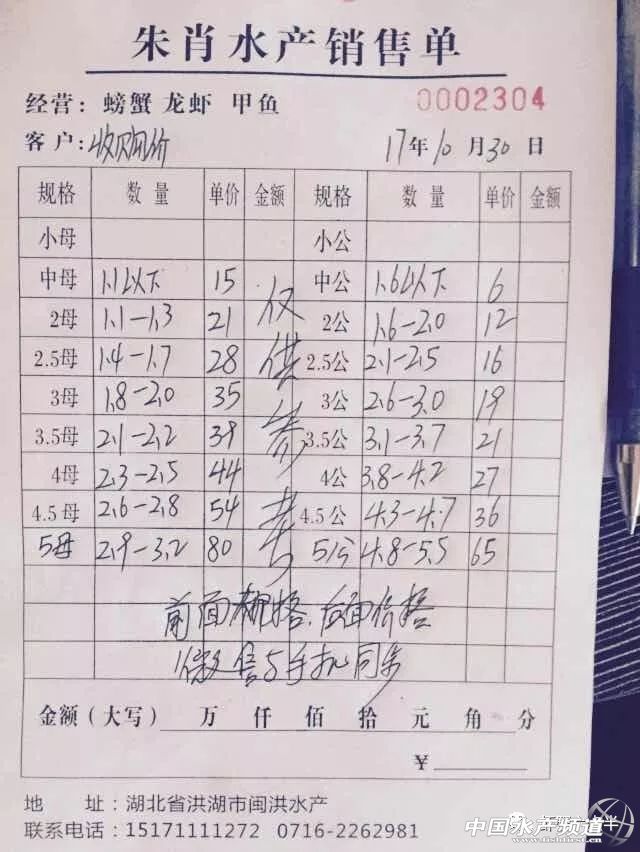 朱肖水产销售单
经营：螃蟹 龙虾 甲鱼 0002304
客户：收购价 17年10月30日
规格 数量 单价 金额 规格 数量 单价 金额
小母 小公
中母 1.1以下 15 中公 1.6以下 6
2母 1.1-1.3 21 2公 1.6-2.0 12
2.5母 1.4-1.7 28 2.5公 2.1-2.5 16
3母 1.8-2.0 35 3公 2.6-3.0 19
3.5母 2.1-2.2 39 3.5公 3.1-3.7 21
4母 2.3-2.5 44 4公 3.8-4.2 27
4.5母 2.6-2.8 54 4.5公 4.3-4.7 36
5母 2.9-3.2 80 5公 4.8-5.5 65
仅供参考
前面规格.后面价格
售与手机同步
金额（大写） 万 仟 佰 拾 元 角 分
¥
地 址：湖北省洪湖市闽洪水产
联系电话：15171111272 0716-2262981
中国水产频道
www.fishfirst.cn